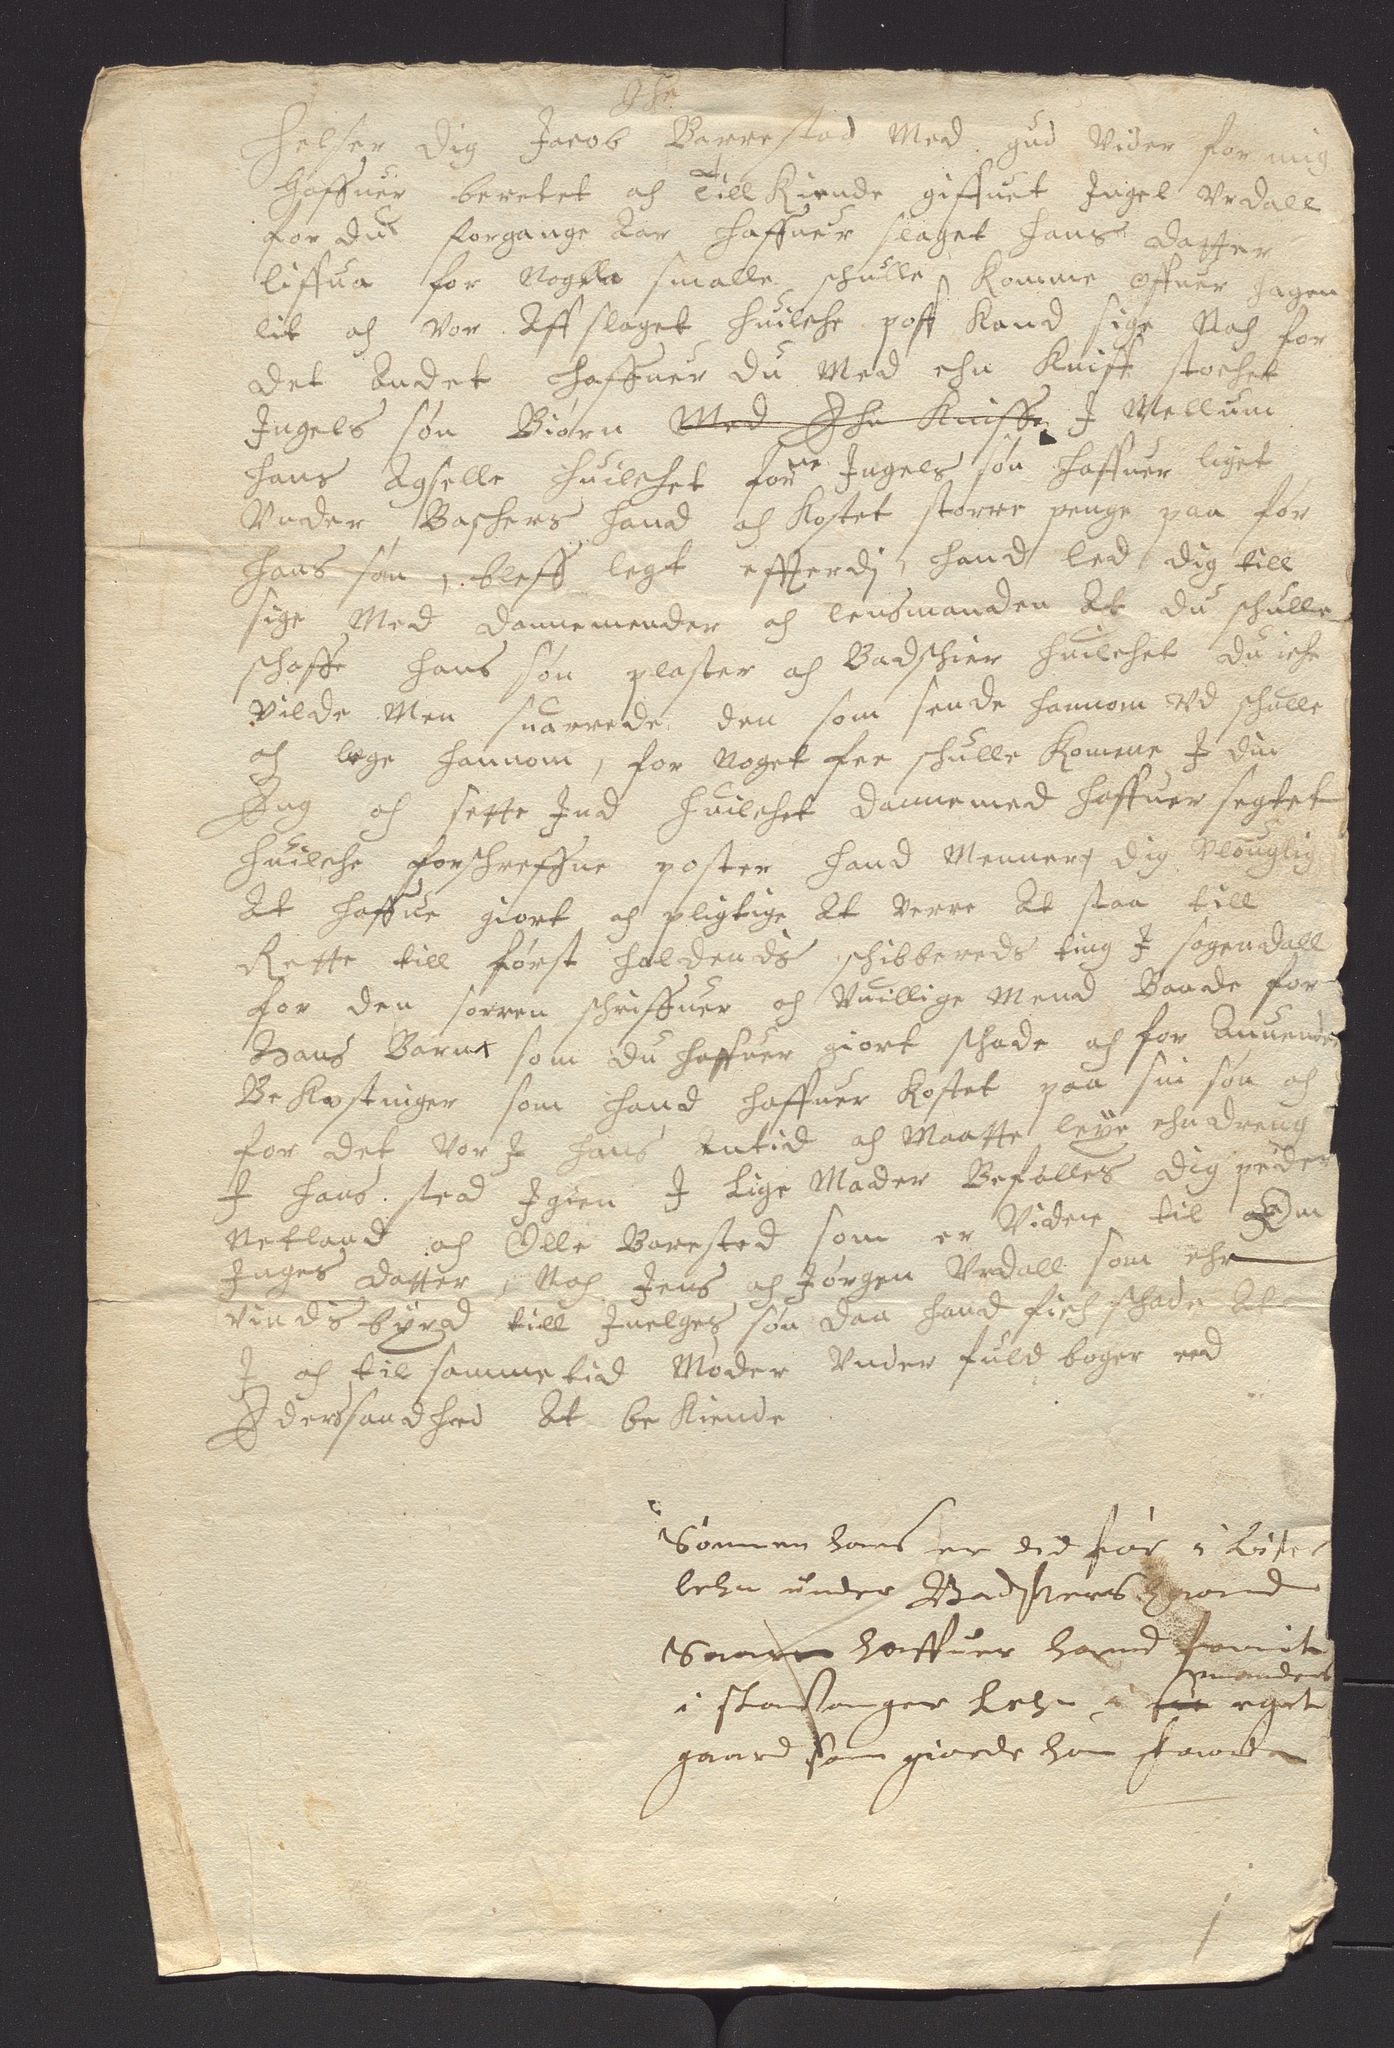 Helser dig Jacob Barrestad Med gud Vider for mig
haffuer beretet och Till Kiende giffuet Jngel Vrdall
for du forgange Aar haffuer slaget hans datter
liffua for Nogle smalle schulle Komme offuer hagen
lit och vor Aff slaget huilche post Kand sige Noch for
det Andet haffuer du Med ehn Kniff stochet
Jngels søn Biørn Med Ehn Kniffe J Mellum
hans Agselle huilchet forne Jngels søn haffuer liget
Vnder Baschers hand och Kostet storre penge paa for
hans søn bleff legt effterdj hand led dig till
sige Med dannemender och lensmanden At du schulle
schaffe hans søn plaster och Badschier huilchet du iche
vilde Men suarrede den som sende hannom Vd schulle
och lege hannom, for noget fee schulle Komme J din
Eng och sette Jnd huilchet dannemed haffuer segtet
huilche forschreffne poster hand Mener dig Vlouglig
At haffue giort och pligtige At verre At staa till
Rette till først holdendis schibbereds ting J sogendall
for den sorren schriffuer och Vuillige Mend Baade for
Hans Barn som du haffuer giort schade och for Anuendte
Be Kostninger som hand haffuer Kostet paa sin søn och
for det Vor J hans Antid och Maatte leye ehn dreng
J hans sted Jgien J Lige Mader Befalles dig peder
Netland och Olle Barested som er Vidne til om
Jnges datter, Noch Jens och Jørgen Vrdall som ehr
vindisbyrd till Juelges søn daa hand fich schade At
J och til samme tid Møder Vnder fuld boger eed
Eders sandhed At be Kiende
Sønnen hans er død før i Lister
lehn under Badskers haand
Saare haffuer hand fanit
mandens
i Stavanger Lehn i sit eget
gaard som giorde ham skaade